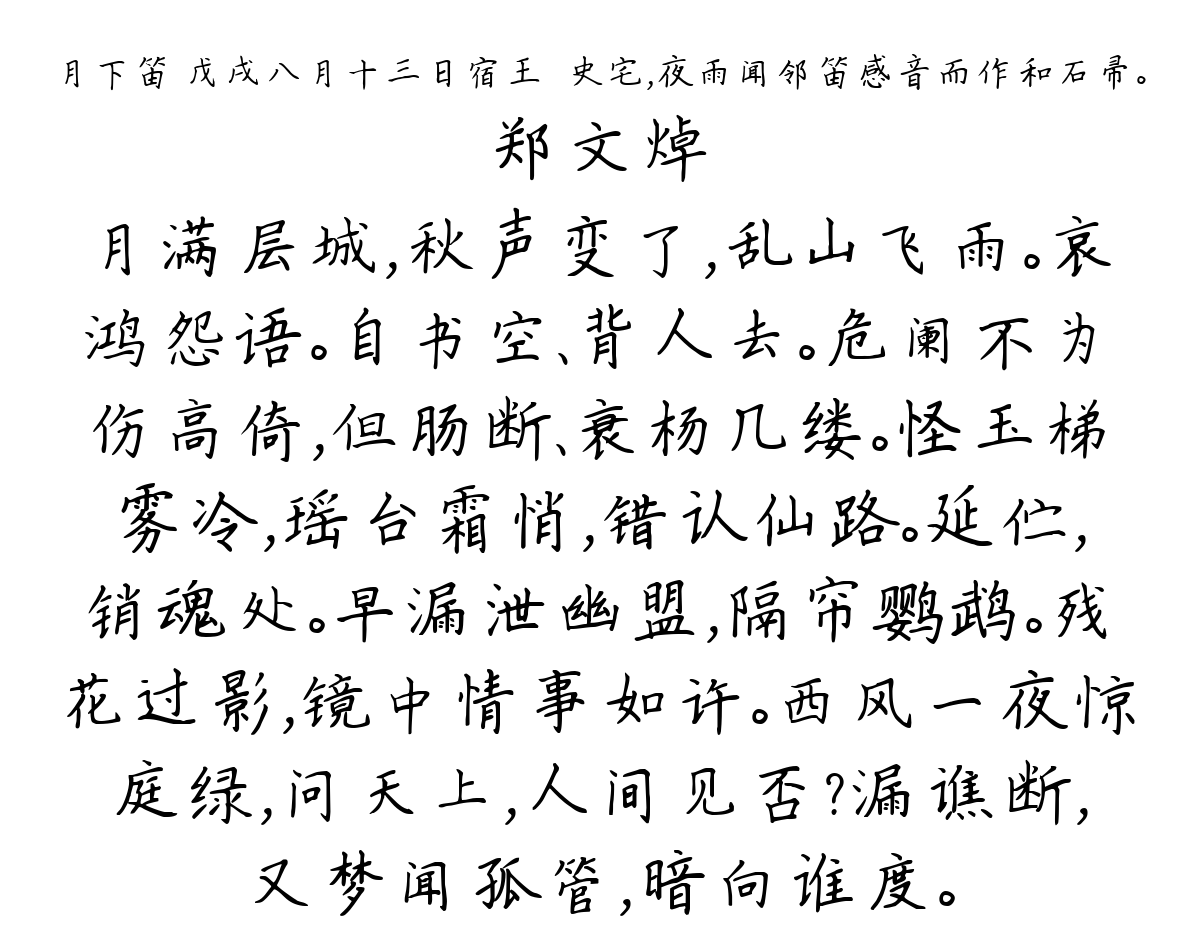 月下笛 戊戌八月十三日宿王 史宅,夜雨闻邻笛感音而作和石帚。
郑文焯
月满层城,秋声变了,乱山飞雨。哀
鸿怨语。自书空、背人去。危阑不为
伤高倚,但肠断、衰杨几缕。怪玉梯
雾冷,瑶台霜悄,错认仙路。延伫,
销魂处。早漏泄幽盟,隔帘鹦鹉。残
花过影,镜中情事如许。西风一夜惊
庭绿,问天上,人间见否?漏谯断,
又梦闻孤管,暗向谁度。